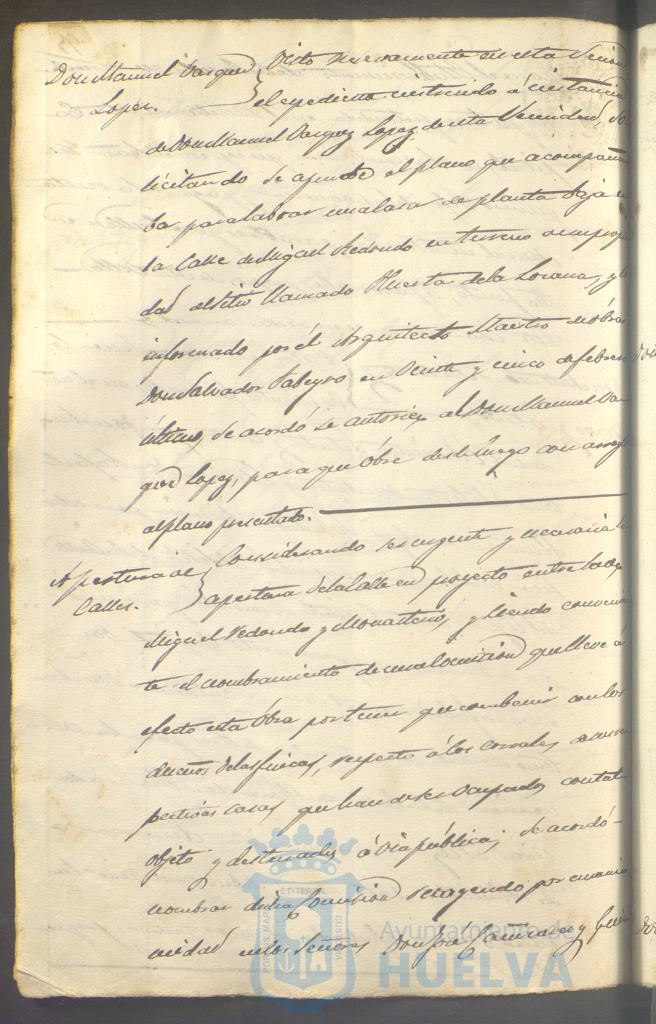 Don Manuel Vazquez Lopez.
Visto nuevamente en esta Sesion
el espediente instruido á instancia
de Don Manuel Vazquez Lopez de esta Vecindad, so
licitando se apruebe el plano que acompaña
ba para labrar una casa de planta baja en
la Calle de Miguel Redondo en terreno de su propie
dad al sitio llamado Huerta de la
informado por el Arquitecto Maestro de obras
Don Salvador en Veinte y cinco de febrero
último, se acordó se autorice al Don Manuel Vaz
quez Lopez, para que obre desde luego con arreglo
al plano presentado.
Apertura de Calles.
Considerando ser urgente y necesaria la
apertura de la Calle en proyecto entre las de
Miguel Redondo y Monasterio, y siendo convenien
te el nombramiento de una Comision que lleve á
efecto esta obra por tener que convenir con los
dueños de las fincas, respecto á los corrales de sus res
pectivas casas que han de ser ocupados con tal
objeto y destinados á via pública; se acordó
nombrar dicha Comision recayendo por unani
midad en los Señores Don José y
PORTUS MARIS ET TERRE CUSTODIA
Ayuntamiento de
HUELVA